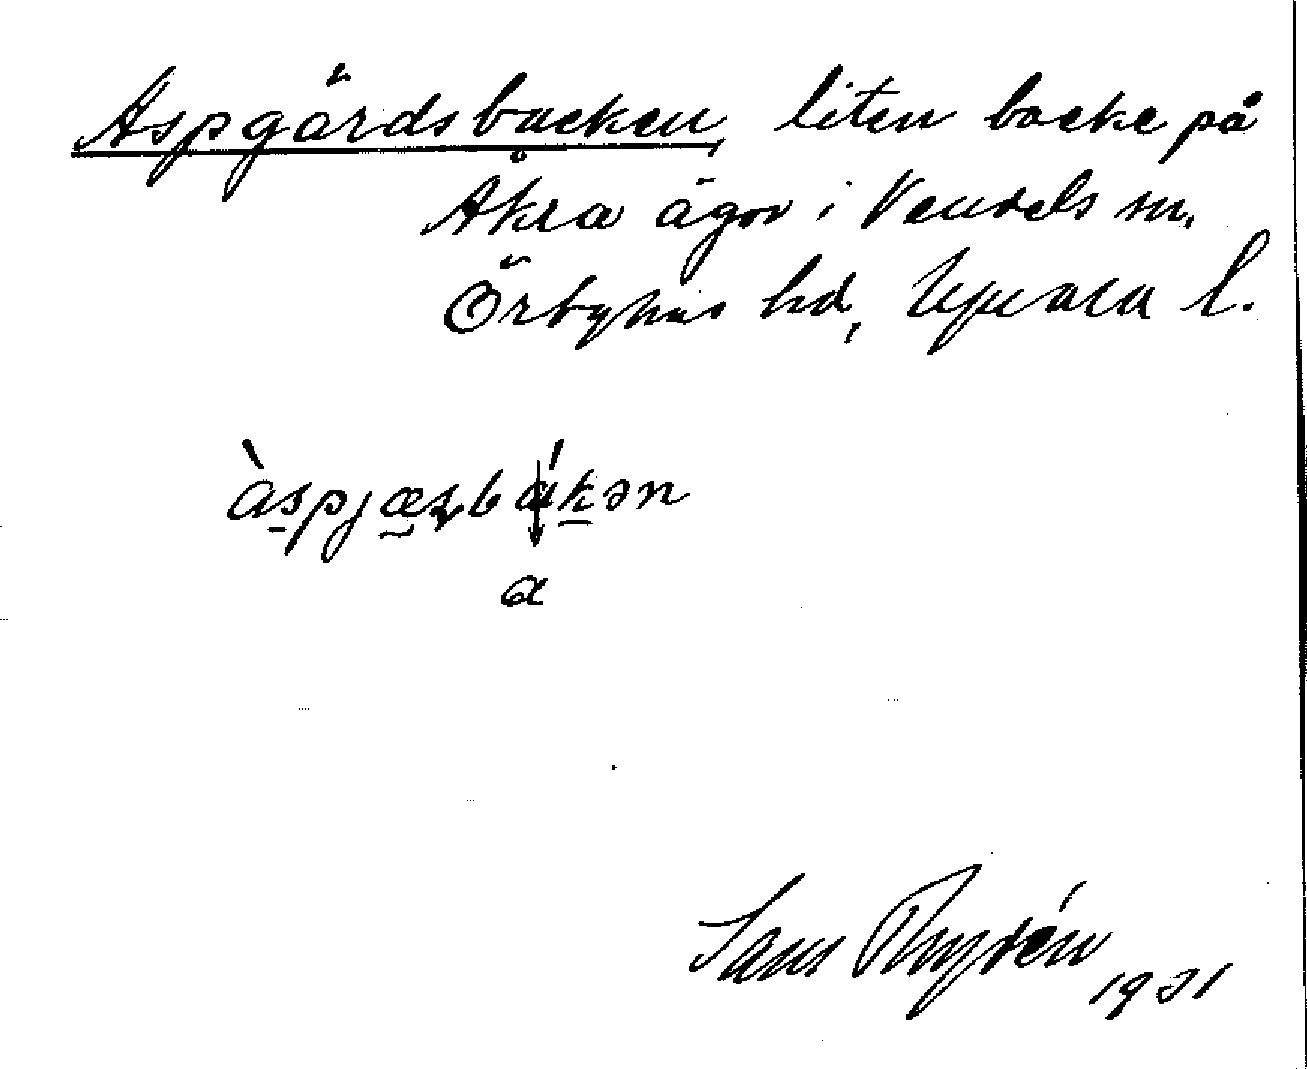 Aspgärdsbacken, liten backe på
Åkra ägor i Vendels sn,
Örbyhus hd, Uppsala l.
àspjæʂbákən
a
1931